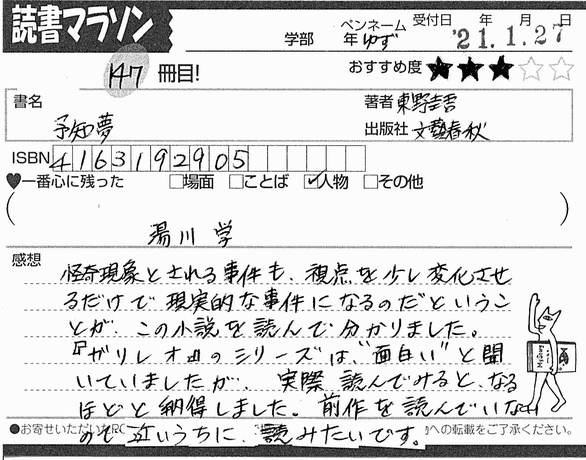 読書マラソン
学部 年 ペンネーム ゆず 受付日 '21.年1.月27日
147 冊目! おすすめ度 ★★★☆☆
書名 予知夢
著者 東野圭吾
出版社 文藝春秋
ISBN 4163192905
♥一番心に残った □場面 □ことば ☑人物 □その他
( 湯川 学 )
感想
怪奇現象とされる事件も、視点を少し変化させ
るだけで現実的な事件になるのだというこ
とが、この小説を読んで分かりました。
『ガリレオ』のシリーズは、"面白い"と聞
いていましたが、実際読んでみると、なる
ほどと納得しました。前作を読んでいな
ので近いうちに、読みたいです。
●お寄せいただいたPC への転載をご了承ください。